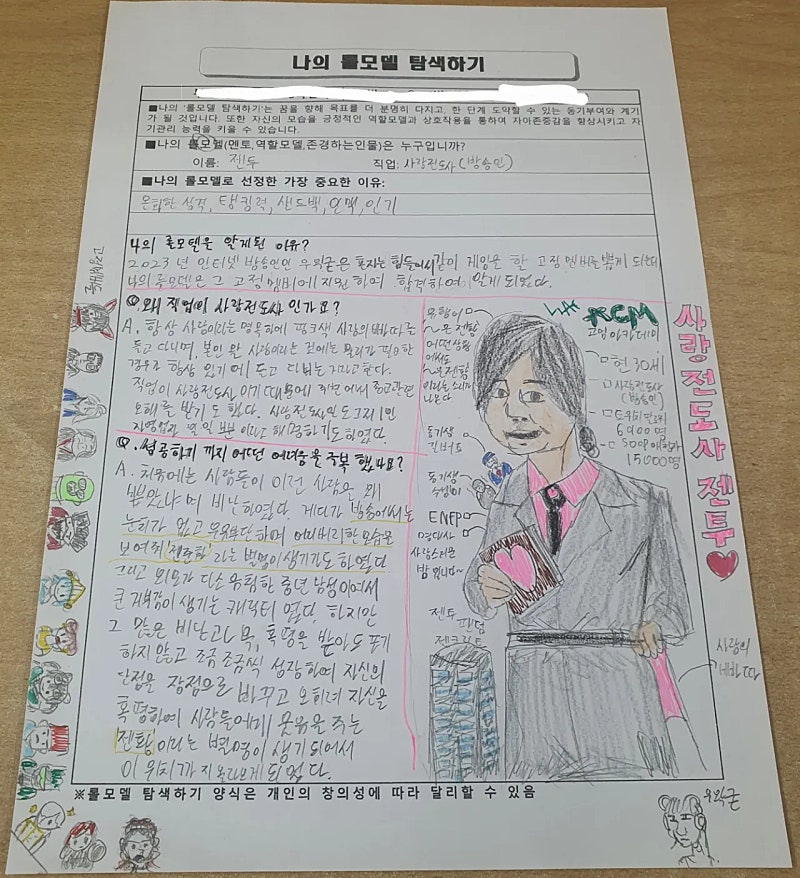 나의 롤모델 탐색하기
■나의 '롤모델 탐색하기'는 꿈을 향해 목표를 더 분명히 다지고, 한 단계 도약할 수 있는 동기부여와 계기
가 될 것입니다. 또한 자신의 모습을 긍정적인 역할모델과 상호작용을 통하여 자아존중감을 향상시키고 자
기관리 능력을 키울 수 있습니다.
■나의 롤모델(멘토,역할모델,존경하는인물)은 누구입니까?
이름: 젠투 직업: 사랑전도사(방송인)
■나의 롤모델로 선정한 가장 중요한 이유:
온화한 성격, 탱킹력, 샌드백, 인맥, 인기
나의 롤모델을 알게된 이유?
2023년 인터넷 방송인인 우왁굳은 혼자는 힘들어서 같이 게임을 할 고정 멤버를 뽑게 되는데
나의 롤모델은 그 고정 멤버에 지원하여 합격하여 알게 되었다.
Q. 왜 직업이 사랑전도사 인가요?
A. 항상 사랑이라는 명목하에 핑크색 사랑의 빠따
들고 다니며, 본인 왈 사랑이라는 것에는 물리가 필요한
경우도 항상 있기에 들고 다니는 거라고 한다.
직업이 사랑전도사 이기 때문에 종교관련
오해를 받기도 했다.
일 뿐 이라고 해명하기도 하였다.
Q. 성공하기 까지 어떤 어려움을 극복 했나요?
A. 처음에는 사람들이 이런 사람을 왜
뽑았냐며 비난하였다. 게다가 방송에서는
눈치가 없고 우유부단하며 어리버리한 모습을
보여줘 라는 별명이 생기기도 하였다
그리고 외모가 다소 음침한 중년 남성이여서
큰 거부감이 생기는 캐릭터 였다. 하지만
그 많은 비난과 욕, 혹평을 받아도 포기
하지 않고 조금 조금씩 성장하여 자신의
단점을 장점으로 바꾸고 오히려 자신을
혹평하여 사람들에게 웃음을 주는
젠황 이라는 별명이 생기 되어서
이 위치까지 올라오게 되었다.
어떤 상황
에서도
동기생
동기생
ENFP
명대사
사랑스러운
밤 입니다~
젠투 팬덤
젠크리트
고멤 아카데미
현 30세
사랑전도사
(방송인)
6900명
15000명
사랑의
사랑전도사 젠투♥
※롤모델 탐색하기 양식은 개인의 창의성에 따라 달리할 수 있음
우왁굳